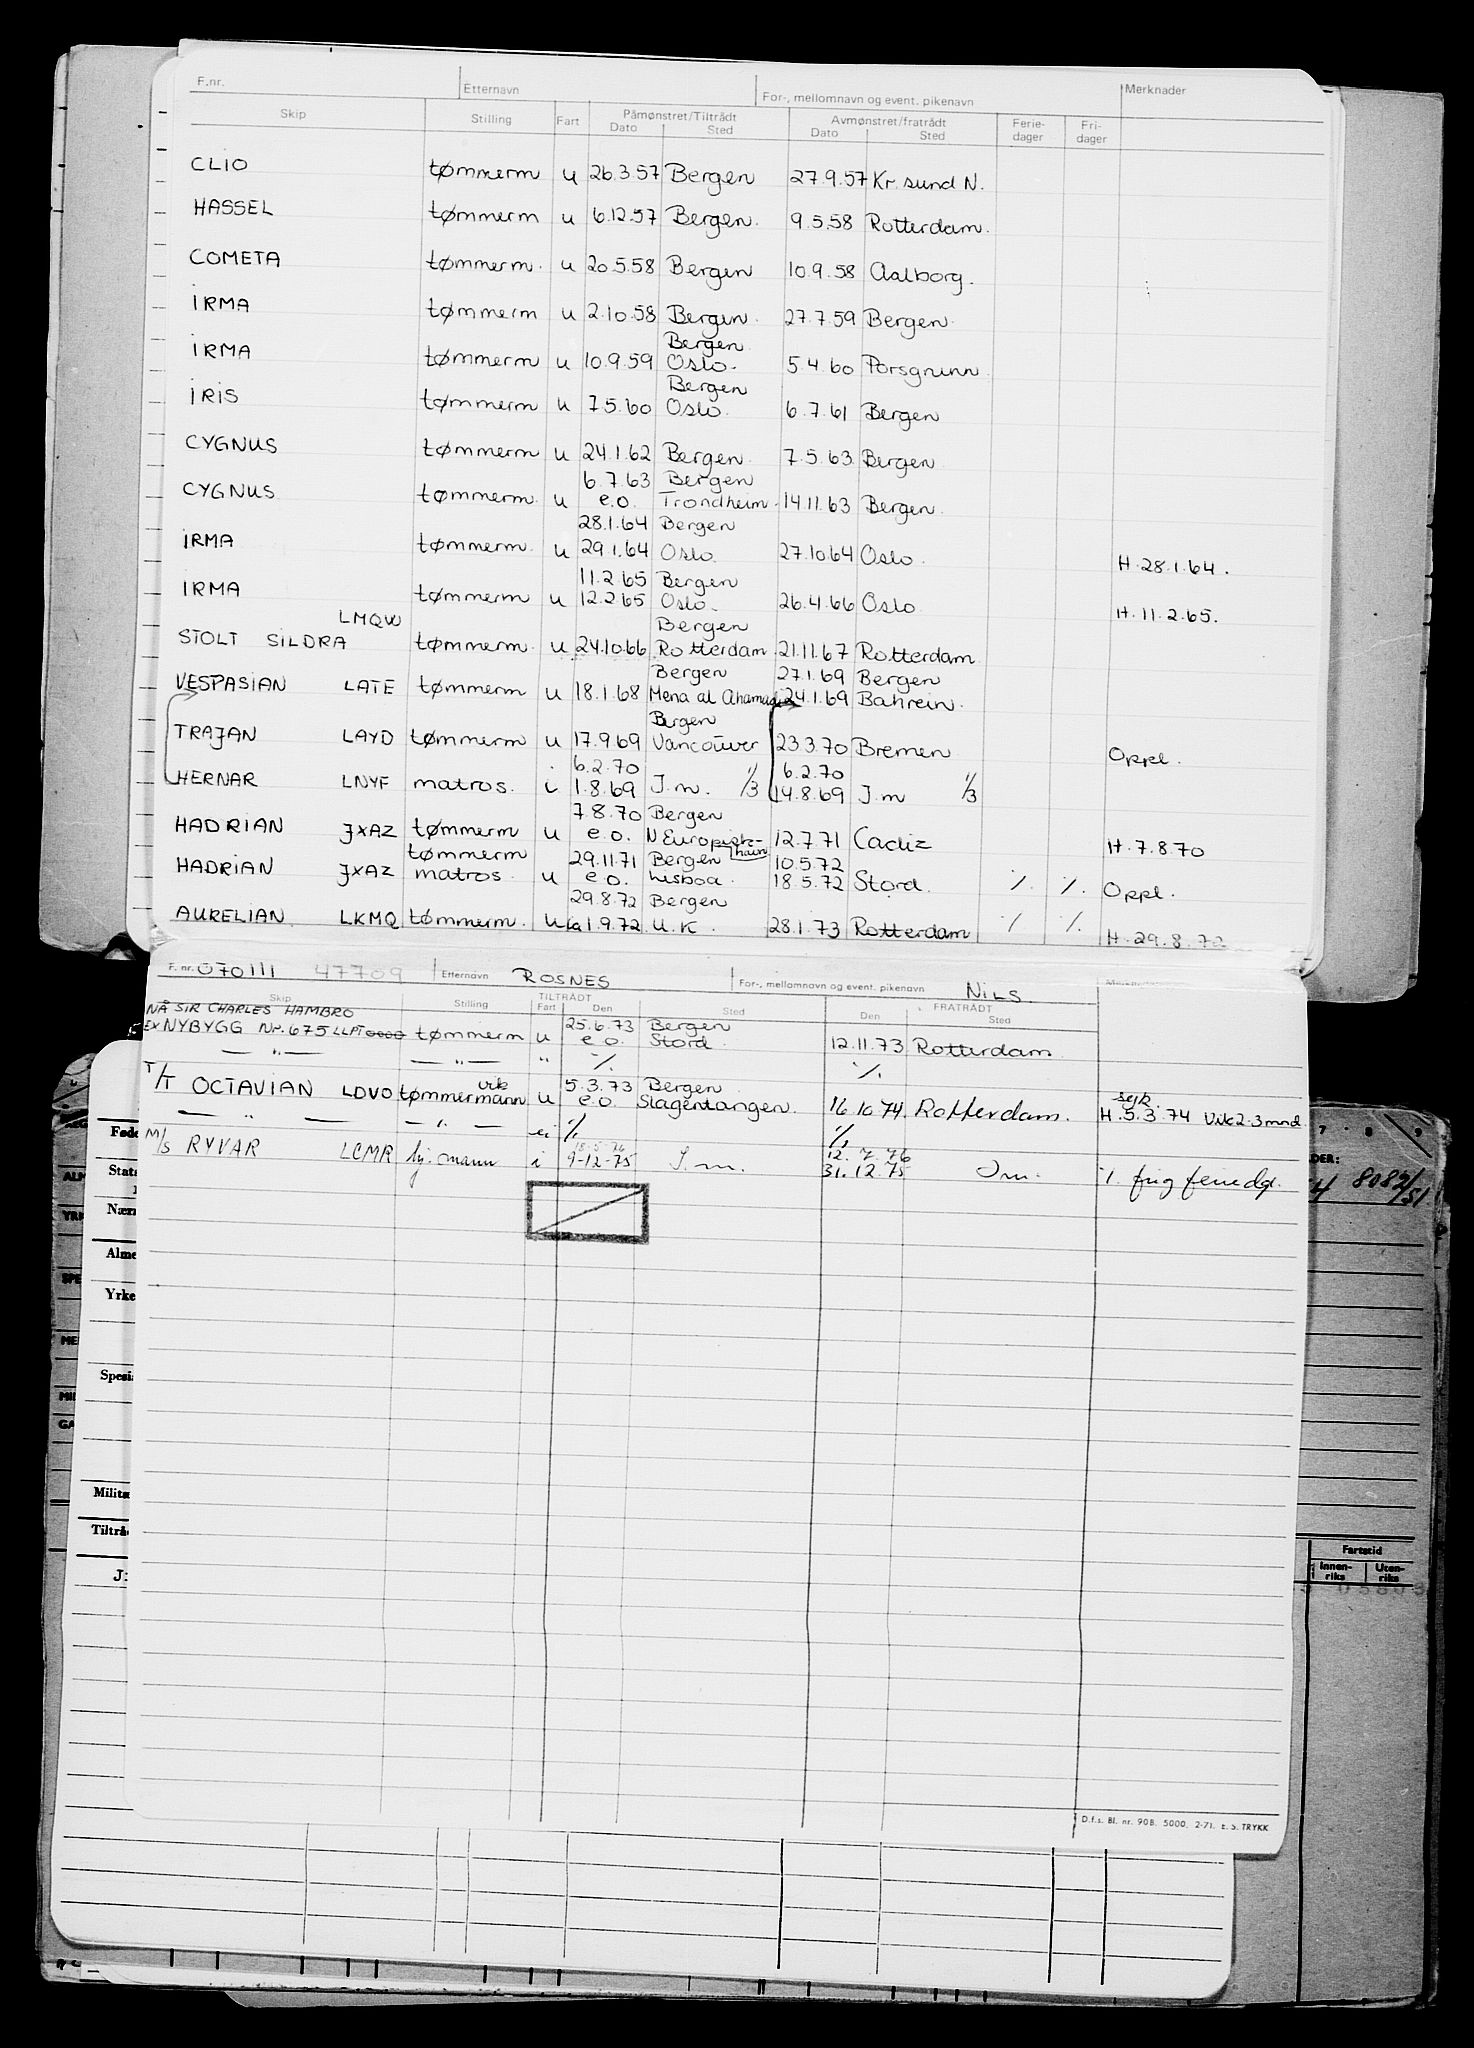 F.nr. Etternavn For-, mellomnavn og event. pikenavn Merknader
Skip Stilling Fart Påmønstret/Tiltrådt Avmønstret/fratrådt Ferie- Fri-
Dato Sted Dato Sted dager dager
CLIO tømmerm u 26.3.57 Bergen 27.9.57 Kr. sund N.
HASSEL tømmerm u 6.12.57 Bergen. 9.5.58 Rotterdam.
COMETA tømmerm. u 20.5.58 Bergen 10.9.58 Aalborg.
IRMA tømmerm u 2.10.58 Bergen. 27.7.59 Bergen.
Bergen.
IRMA tømmerm u 10.9.59 Oslo. 5.4.60 Porsgrunn
Bergen
IRIS tømmerm u 7.5.60 Oslo. 6.7.61 Bergen
CYGNUS tømmerm u 24.1.62 Bergen. 7.5.63 Bergen
6.7.63 Bergen
CYGNUS tømmerm. u e.o. Trondheim. 14.11.63 Bergen.
28.1.64 Bergen
IRMA tømmerm. u 29.1.64 Oslo. 27.10.64 Oslo. H. 28.1.64.
11.2.65 Bergen
IRMA tømmerm u 12.2.65 Oslo. 26.4.66 Oslo H. 11.2.65.
LMQW Bergen
STOLT SILDRA tømmerm. u 24.10.66 Rotterdam. 21.11.67 Rotterdam
Bergen 27.1.69 Bergen
VESPASIAN LATE tømmerm u 18.1.68 Mena al 24.1.69 Bahrein.
Bergen
TRAJAN LAYD tømmerm u 17.9.69 Vancouver 23.3.70 Bremen Oppl.
6.2.70 6.2.70
HERNAR LNYF matros. i 1.8.69 J.m. 1/3 14.8.69 J.m 1/3
7.8.70 Bergen
HADRIAN JXAZ tømmerm u e.o. N Europeisk- havn 12.7.71 Cadiz H. 7.8.70
tømmerm 29.11.71 Bergen 10.5.72
HADRIAN JXAZ matros. u e.o. Lisboa. 18.5.72 Stord. ./. ./. Oppl.
29.8.72 Bergen
AURELIAN LKMQ tømmerm. u ca 1.9.72 U.K. 28.1.73 Rotterdam ./. ./. H. 29.8.72
F. nr. 070111 47709 Etternavn ROSNES For-, mellomnavn og event. pikenavn NILS.
Skip Stilling TILTRÅDT FRATRÅDT
Fart Den Sted Den Sted
NÅ SIR CHARLES HAMBRO 25.6.73 Bergen
EX NYBYGG Nr. 675 LLPT tømmerm u e.o. Stord. 12.11.73 Rotterdam.
— " — — " — " ./. ./.
vik 5.3.73 Bergen syk.
T/T OCTAVIAN LDVO tømmermann u e.o. Slagentangen. 16.10.74. Rotterdam. H. 5.3.74 Vik 2-3 mnd.
— " — — " — ./. ./.
18.5.76 12.7.76
M/S RYVAR LCMR hj. mann i 9-12-75 J.m. 31.12.75 J.m. ./. frig feriedg.
Føde
Stats
Næri
Alme
Yrke
Spesia
Militæ
Tiltrå
J:
AL
YR
SPE
ME
MIL
GA
7 · 8 · 9
DER:
4 8082/51
Fartstid
Innen- Uten-
riks riks
D.f.s. Bl. nr. 90B. 5000. 2-71. E.S. TRYKK